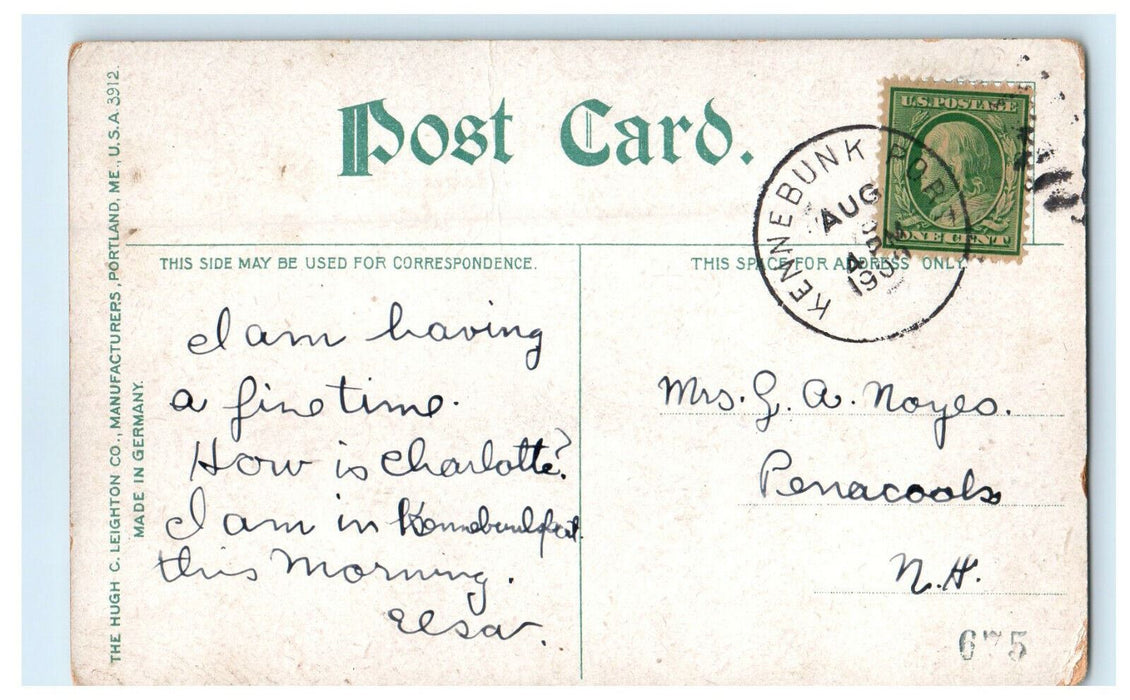 THE HUGH C. LEIGHTON CO., MANUFACTURERS, PORTLAND, ME., U.S.A. 3912.
MADE IN GERMANY.
Post Card.
U.S. POSTAGE
ONE CENT
KENNEBUNK PORT
AUG
4 PM
THIS SIDE MAY BE USED FOR CORRESPONDENCE.
THIS SPACE FOR ADDRESS ONLY
I am having
a fine time.
How is Charlotte?
I am in Kennebunkport
this Morning.
Elsa.
Mrs. G. A. Noyes.
Penacook
N.H.
675